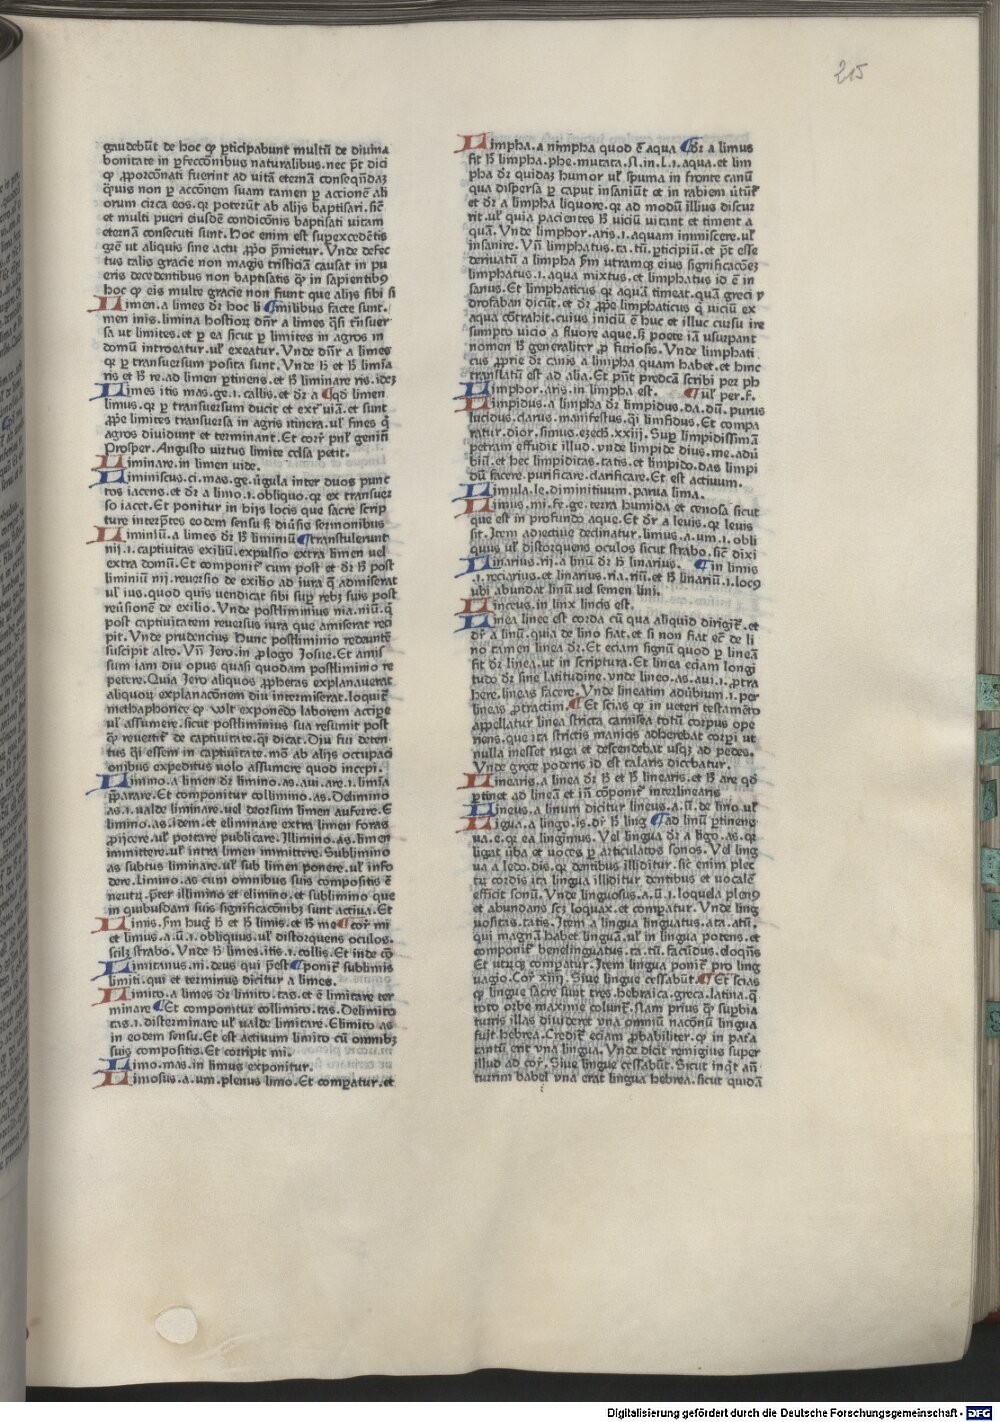 215
gaudebūt de hoc qꝫ ꝑticipabunt multū de diuina
bonitate in ꝑfecc̄onibus naturalibus. nec pt̄ dici
qꝫ ꝓporc̄onati fuerint ad uitā eternā conseqn̄daꝫ
qͣuis non ꝑ acc̄onem suam tamen ꝑ accionē ali
orum circa eos. qꝛ poterūt ab alijs baptisari. sic̄
et multi pueri eiusdē condic̄onis baptisati uitam
eternā consecuti sunt. Hoc enim est suꝑexcedētis
gr̄e ut aliquis sine actu ꝓpo p̄mietur. Vnde defec
tus talis gracie non magis tristiciā causat in pu
eris decedentibus non baptisatis qͣꝫ in sapientibꝰ
hoc qꝫ eis multe gracie non fiunt que alijs sibi si
Limen. a limes dr̄ hoc li ¶ milibus facte sunt.
men inis. limina hostioꝝ dn̄r a limes qͣsi trn̄suer
sa ut limites. et ꝑ ea sicut ꝑ limites in agros in
domū introeatur. ul̓ exeatur. Vnde dn̄r a limes
qꝛ ꝑ transuersum posita sunt. Vnde h̄ et h̄ limīa
ris et h̄ re. ad limen ꝑtinens. et h̄ liminare ris. ideꝫ
Limes itis mas. ge. i. callis. et dr̄ a ¶ qd̄ limen
limus. qꝛ ꝑ transuersum ducit et extͣ uiā. et sunt
ꝓpe limites transuersa in agris itinera. ul̓ fines qͥ
agros diuidunt et terminant. Et corr̄ pnl̓ geniti
Prosper. Angusto uirtus limite celsa petit.
Liminare. in limen uide.
Liminiscus. ci. mas. ge. ūgula inter duos punc
tos iacens. et dr̄ a limo. i. obliquo. qꝛ ex transuer
so iacet. Et ponitur in hijs locis que sacre scrip
ture interp̄tes eodem sensu sꝫ diūsis sermonibus
Liminiū. a limes dr̄ h̄ liminiū ¶ transtulerunt
nij. i. captiuitas exiliū. expulsio extra limen uel
extra domū. Et componit̄ cum post et dr̄ h̄ post
liminiū nij. reuersio de exilio ad iura qͣ admiserat
ul̓ ius. quod quis uendicat sibi suꝑ rebꝫ suis post
reūsionē de exilio. Vnde postliminius nia. niū. qͥ
post captiuitatem reuersus iura que amiserat reci
pit. Vnde prudencius Hunc postliminio redeuntē
suscipit alto. Vn̄ Jero. in ꝓlogo Josue. Et amis
sum iam diu opus quasi quodam postliminio re
petere. Quia Jero aliquos ꝓphetas explanauerat
aliquoꝝ explanac̄onem diu intermiserat. loquit̄
methaphorice qꝫ wlt exponēdo laborem accipe
ul̓ assumere. sicut postliminius sua resumit post
qͣꝫ reuertit̄ de captiuitate. qͣsi dicat. Diu fui deten
tus qͣsi essem in captiuitate. mō ab alijs occupaci
onibus expeditus uolo assumere quod incepi.
Limino. a limen dr̄ limino. as. aui. are. i. limīa
p̄parare. Et componitur collimino. as. Delimino
as. i. ualde liminare. uel deorsum limen auferre. E
limino. as. idem. et eliminare extra limen foras
ꝓijcere. ul̓ portare publicare. Illimino. as. limen
immittere. ul̓ intra limen immittere. Sublimino
as subtus liminare. ul̓ sub limen ponere. ul̓ info
dere. Limino. as cum omnibus suis compositis ē
neutꝝ. p̄ter illimino et elimino. et sublimino que
in quibusdam suis significac̄onibꝫ sunt actiua. Et
Limis. sm̄ hug. h̄ et h̄ limis. et h̄ me ¶ corr̄ mi
et limus. a. ū. i. obliquus. ul̓ distorquens oculos.
scilꝫ strabo. Vnde h̄ limes. itis. i. collis. Et inde cō
Limitanus. ni. deus qui p̄est ¶ ponit̄ sublimis
limiti. qui et terminus dicitur a limes.
Limito. a limes dr̄ limito. tas. et ē limitare ter
minare ¶ Et componitur collimito. tas. Delimito
tas. i. disterminare ul̓ ualde limitare. Elimito as
in eodem sensu. Et est actiuum limito cū omnibꝫ
suis compositis. Et corripit mi.
Limo. mas. in limus exponitur.
Limosus. a. um. plenus limo. Et comꝑatur. et
Limpha. a nimpha quod ē aqua ¶ dr̄ a limus
fit h̄ limpha. phe. mutata. n. in. l. i. aqua. et lim
pha dr̄ quidaꝫ humor ul̓ spuma in fronte canū
qua dispersa ꝑ caput insaniūt et in rabiem ūtūt̄
et dr̄ a limpha liquore. qꝛ ad modū illius discur
rit. ul̓ quia pacientes h̄ uiciū uitant et timent a
quā. Vnde limphor. aris. i. aquam immiscere. ul̓
insanire. Vn̄ limphatus. ta. tū. ꝑticipiū. et pt̄ esse
deriuatū a limpha sm̄ utramqꝫ eius significac̄oneꝫ
limphatus. i. aqua mixtus. et limphatus id ē in
sanus. Et limphaticus qꝛ aquā timeat. quā greci y
drofaban dicūt. et dr̄ ꝓpͥe limphaticus qͥ uiciū ex
aqua cōtrahit. cuius iniciū ē huc et illuc cursu ire
sumpto uicio a fluore aque. sꝫ poete iā usurpant
nomen h̄ generaliter ꝓ furiosis. Vnde limphati
cus ꝓprie dr̄ canis a limpha quam habet. et hinc
translatū est ad alia. Et pn̄t predc̄a scribi per ph
Limphor. aris. in limpha est. ¶ ul̓ per. f.
Limpidus. a limpha dr̄ limpidus. da. dū. purus
lucidus. clarus. manifestus. qͣsi limfidus. Et compa
ratur. dior. simus. ezech. xxiij. Suꝑ limpidissimā
petram effudit illud. vnde limpide dius. me. adū
biū. et hec limpiditas. tatis. et limpido. das limpi
dū facere. purificare. clarificare. Et est actiuum.
Limula. le. diminitiuum. parua lima.
Limus. mi. fe. ge. terra humida et cenosa sicut
que est in profundo aque. Et dr̄ a leuis. qꝛ leuis
sit. Jtem adiectiue declinatur. limus. a. um. i. obli
quus ul̓ distorquens oculos sicut strabo. sic̄ dixi
Linarius. rij. a linū dr̄ h̄ linarius. ¶ in limis
.i. reciarius. et linarius. ria. riū. et h̄ linariū. i. locꝰ
ubi abundat linū uel semen lini.
Linceus. in linx lincis est.
Linea linee est corda cū qua aliquid dirigit̄. et
dr̄ a linū. quia de lino fiat. et si non fiat etͥ de li
no tamen linea dr̄. Et eciam signū quod ꝑ lineā
fit dr̄ linea. ut in scriptura. Et linea eciam longi
tudo dr̄ sine latitudine. vnde lineo. as. aui. i. ꝓtra
here. lineas facere. Vnde lineatim adūbium. i. per
lineas ꝓtractim. ¶ Et scias qꝫ in ueteri testamēto
appellatur linea stricta camisea totū corpus ope
riens. que ita strictis manicis adherebat corpi ut
nulla inesset ruga et descendebat usqꝫ ad pedes.
Vnde grece poderis id est talaris dicebatur.
Linearis. a linea dr̄ h̄ et h̄ linearis. et h̄ are qd̄
ꝑtinet ad lineā et in̄ cōponit̄ interlinearis
Lineus. a linum dicitur lineus. a. ū. de lino ul̓
Ligua. a lingo. is. dr̄ h̄ ling ¶ ad linū ꝑtinens
ua. e. qꝛ ea lingimus. Vel lingua dr̄ a ligo. as. qꝛ
ligat ūba et uoces ꝑ articulatos sonos. Vel ling
ua a ledo. dis. qꝛ dentibus illiditur. sic̄ enim plec
tꝝ cordis ita lingua illiditur dentibus et uocalē
efficit sonū. Vnde linguosus. a. ū. i. loquela plenꝰ
et abundans scꝫ loquax. et comꝑatur. Vnde ling
uositas. tatis. Jtem a lingua linguatus. ata. atū.
qui magnā habet linguā. ul̓ in lingua potens. et
componit̄ benelinguatus. ta. tū. facūdus. eloqn̄s
Et utrqꝫ comꝑatur. Jtem lingua ponit̄ pro ling
uagio. Cor̄ xiij. Siue lingue cessabūt. ¶ Et scias
qꝫ lingue sacre sunt tres. hebraica. greca. latina. qͥ
toto orbe maxime colunt̄. Nam prius qͣꝫ suꝑbia
turris illas diuideret vna omniū nac̄onū lingua
fuit hebrea. Credit̄ eciam ꝓbabiliter. qꝫ in patͥa
tantū erit vna lingua. Vnde dicit remigius super
illud ad cor̄. Siue lingue cessabūt. Sicut inqͥt an̄
turrim babel vna erat lingua hebrea. sicut quidā
Digitalisierung gefördert durch die Deutsche Forschungsgemeinschaft - DFG